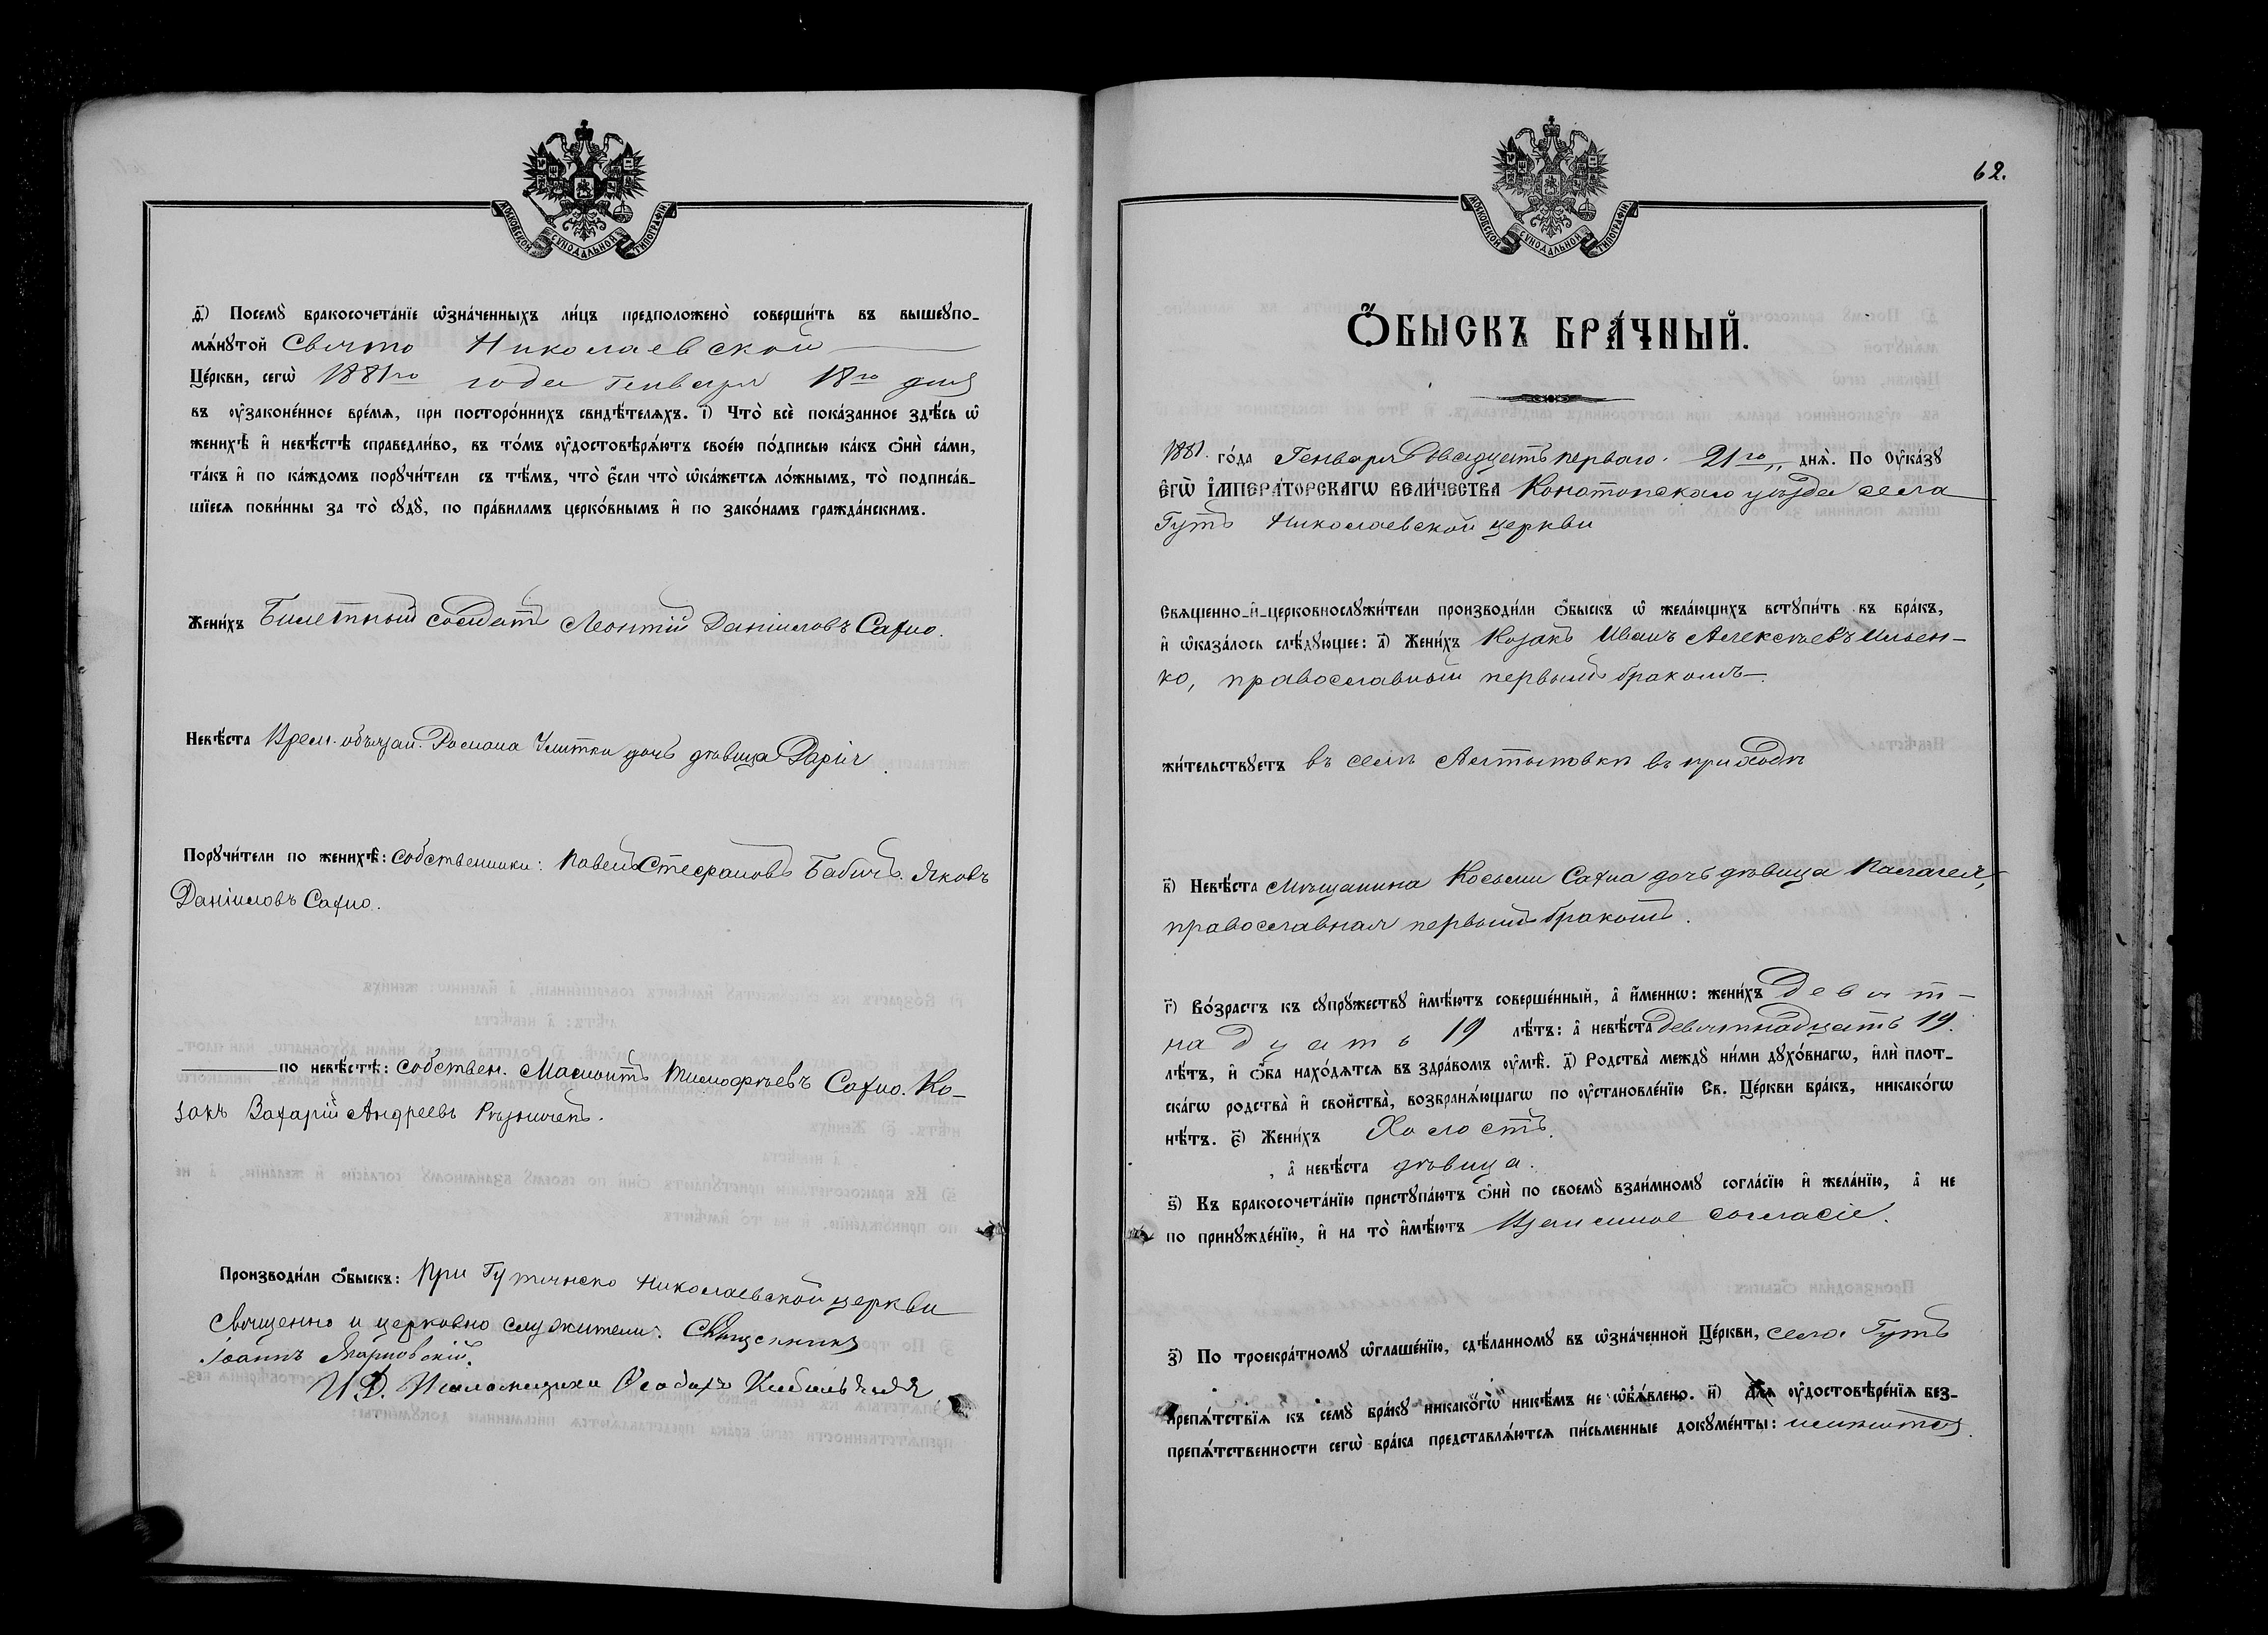 МОСКОВСКОЙ СѴНОДАЛЬНОЙ ТИПОГРАФІИ
д҃) Посемꙋ̀ бракосочета́нїе ѡ҆зна́ченныхъ ли́цъ предположено̀ соверши́ть въ вышеꙋпо-
мѧ́нꙋтой Свято Николаевской
Це́ркви, сегѡ̀ 1881го года Генваря 18го дня
въ ᲂу҆законе́нное вре́мѧ, при посторо́ннихъ свидѣ́телѧхъ. і҃) Что̀ всѐ пока́занное здѣ́сь ѡ҆
женихѣ̀ и҆ невѣ́стѣ справедли́во, въ то́мъ ᲂу҆достовѣрѧ́ютъ свое́ю по́дписью ка́къ ѻ҆нѝ са́ми,
та́къ и҆ по ка́ждомъ порꙋчи́тели съ тѣ́мъ, что̀ є҆́сли что̀ ѡ҆ка́жетсѧ ло́жнымъ, то̀ подписа́в-
шїесѧ пови́нны за то̀ сꙋдꙋ̀, по пра́виламъ церко́внымъ и҆ по зако́намъ гражда́нскимъ.
Жени́хъ Билетный солдатъ Леонтій Даніиловъ Сахно.
Невѣ́ста Врем. обязан. Романа Улитки дочь дѣвица Дарія
Порꙋчи́тели по женихѣ̀: собственники: Павелъ Стефановъ Бабичъ. Яковъ
Даніиловъ Сахно.
по невѣ́стѣ: собствен. Мамонтъ Тимофѣевъ Сахно. Ко-
закъ Захарій Андреевъ Рѣзниченк.
Производи́ли ѻ҆́быскъ: При Гутянско Николаевской церкви
священно и церковно служители: Священникъ
Іоаннъ
И. Д. Псаломщика
62.
МОСКОВСКОЙ СѴНОДАЛЬНОЙ ТИПОГРАФІИ
Ѻ҆́БЫСКЪ БРА́ЧНЫЙ.
1881. го́да Генваря двадцать перваго. 21го днѧ̀. По ᲂу҆ка́зꙋ
є҆гѡ̀ і҆мпера́торскагѡ вели́чества Конотопскаго уѣзда села
Гутъ Николаевской церкви
Свѧщенно-и҆-церковнослꙋжи́тели производи́ли ѻ҆́быскъ ѡ҆ жела́ющихъ встꙋпи́ть въ бра́къ,
и҆ ѡ҆каза́лось слѣ́дꙋющее: а҃) Жени́хъ Козакъ Иванъ Алексѣевъ Ильен-
ко, православный первымъ бракомъ.
жи́тельствꙋетъ въ селѣ Алтыновкѣ въ приходѣ
в҃) Невѣ́ста Мѣщанина Косьмы Сахна дочь дѣвица Пелагея,
православная первымъ бракомъ.
г҃) Во́зрастъ къ сꙋпрꙋ́жествꙋ и҆мѣ́ютъ соверше́нный, а҆ и҆́менно: жени́хъ Девят-
надцать 19 лѣ́тъ: а҆ невѣ́ста девятнадцать 19.
лѣ́тъ, и҆ ѻ҆́ба нахо́дѧтсѧ въ здра́вомъ ᲂу҆мѣ̀. д҃) Родства̀ междꙋ̀ ни́ми дꙋхо́внагѡ, и҆лѝ плот-
ска́гѡ родства̀ и҆ сво́йства, возбранѧ́ющагѡ по ᲂу҆становле́нїю Св. Це́ркви бра́къ, никако́гѡ
нѣ́тъ. є҃) Жени́хъ Холостъ.
, а҆ невѣ́ста дѣвица.
ѕ҃) Къ бракосочета́нїю пристꙋпа́ютъ ѻ҆нѝ по своемꙋ̀ взаи́мномꙋ согла́сїю и҆ жела́нїю, а҆ не
по принꙋжде́нїю, и҆ на то̀ и҆мѣ́ютъ Взаимное согласіе.
з҃) По троекра́тномꙋ ѡ҆глаше́нїю, сдѣ́ланномꙋ въ ѡ҆зна́ченной Це́ркви, села Гутъ
препѧ́тствїѧ къ семꙋ̀ бра́кꙋ никако́гѡ никѣ́мъ не ѡ҆б̾ѧ́влено. и҃) Длѧ ᲂу҆достовѣре́нїѧ без-
препѧ́тственности сегѡ̀ бра́ка представлѧ́ютсѧ пи́сьменные докꙋме́нты: